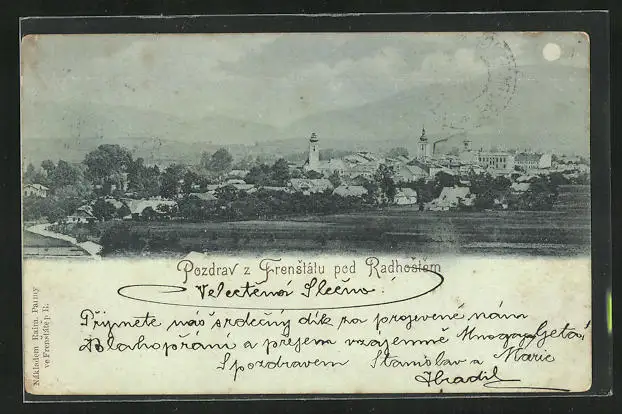 Pozdrav z Frenštátu pod Radhoštěm
Velectěná Slečno!
Přijmete náš srdečný dík za projevené nám
Blahopřání a přejem vzájemně Mnogaja Ljeta!
S pozdravem Stanislav a Marie
Hradil
Nákladem Raim. Parmy
ve Frenštátě p. R.